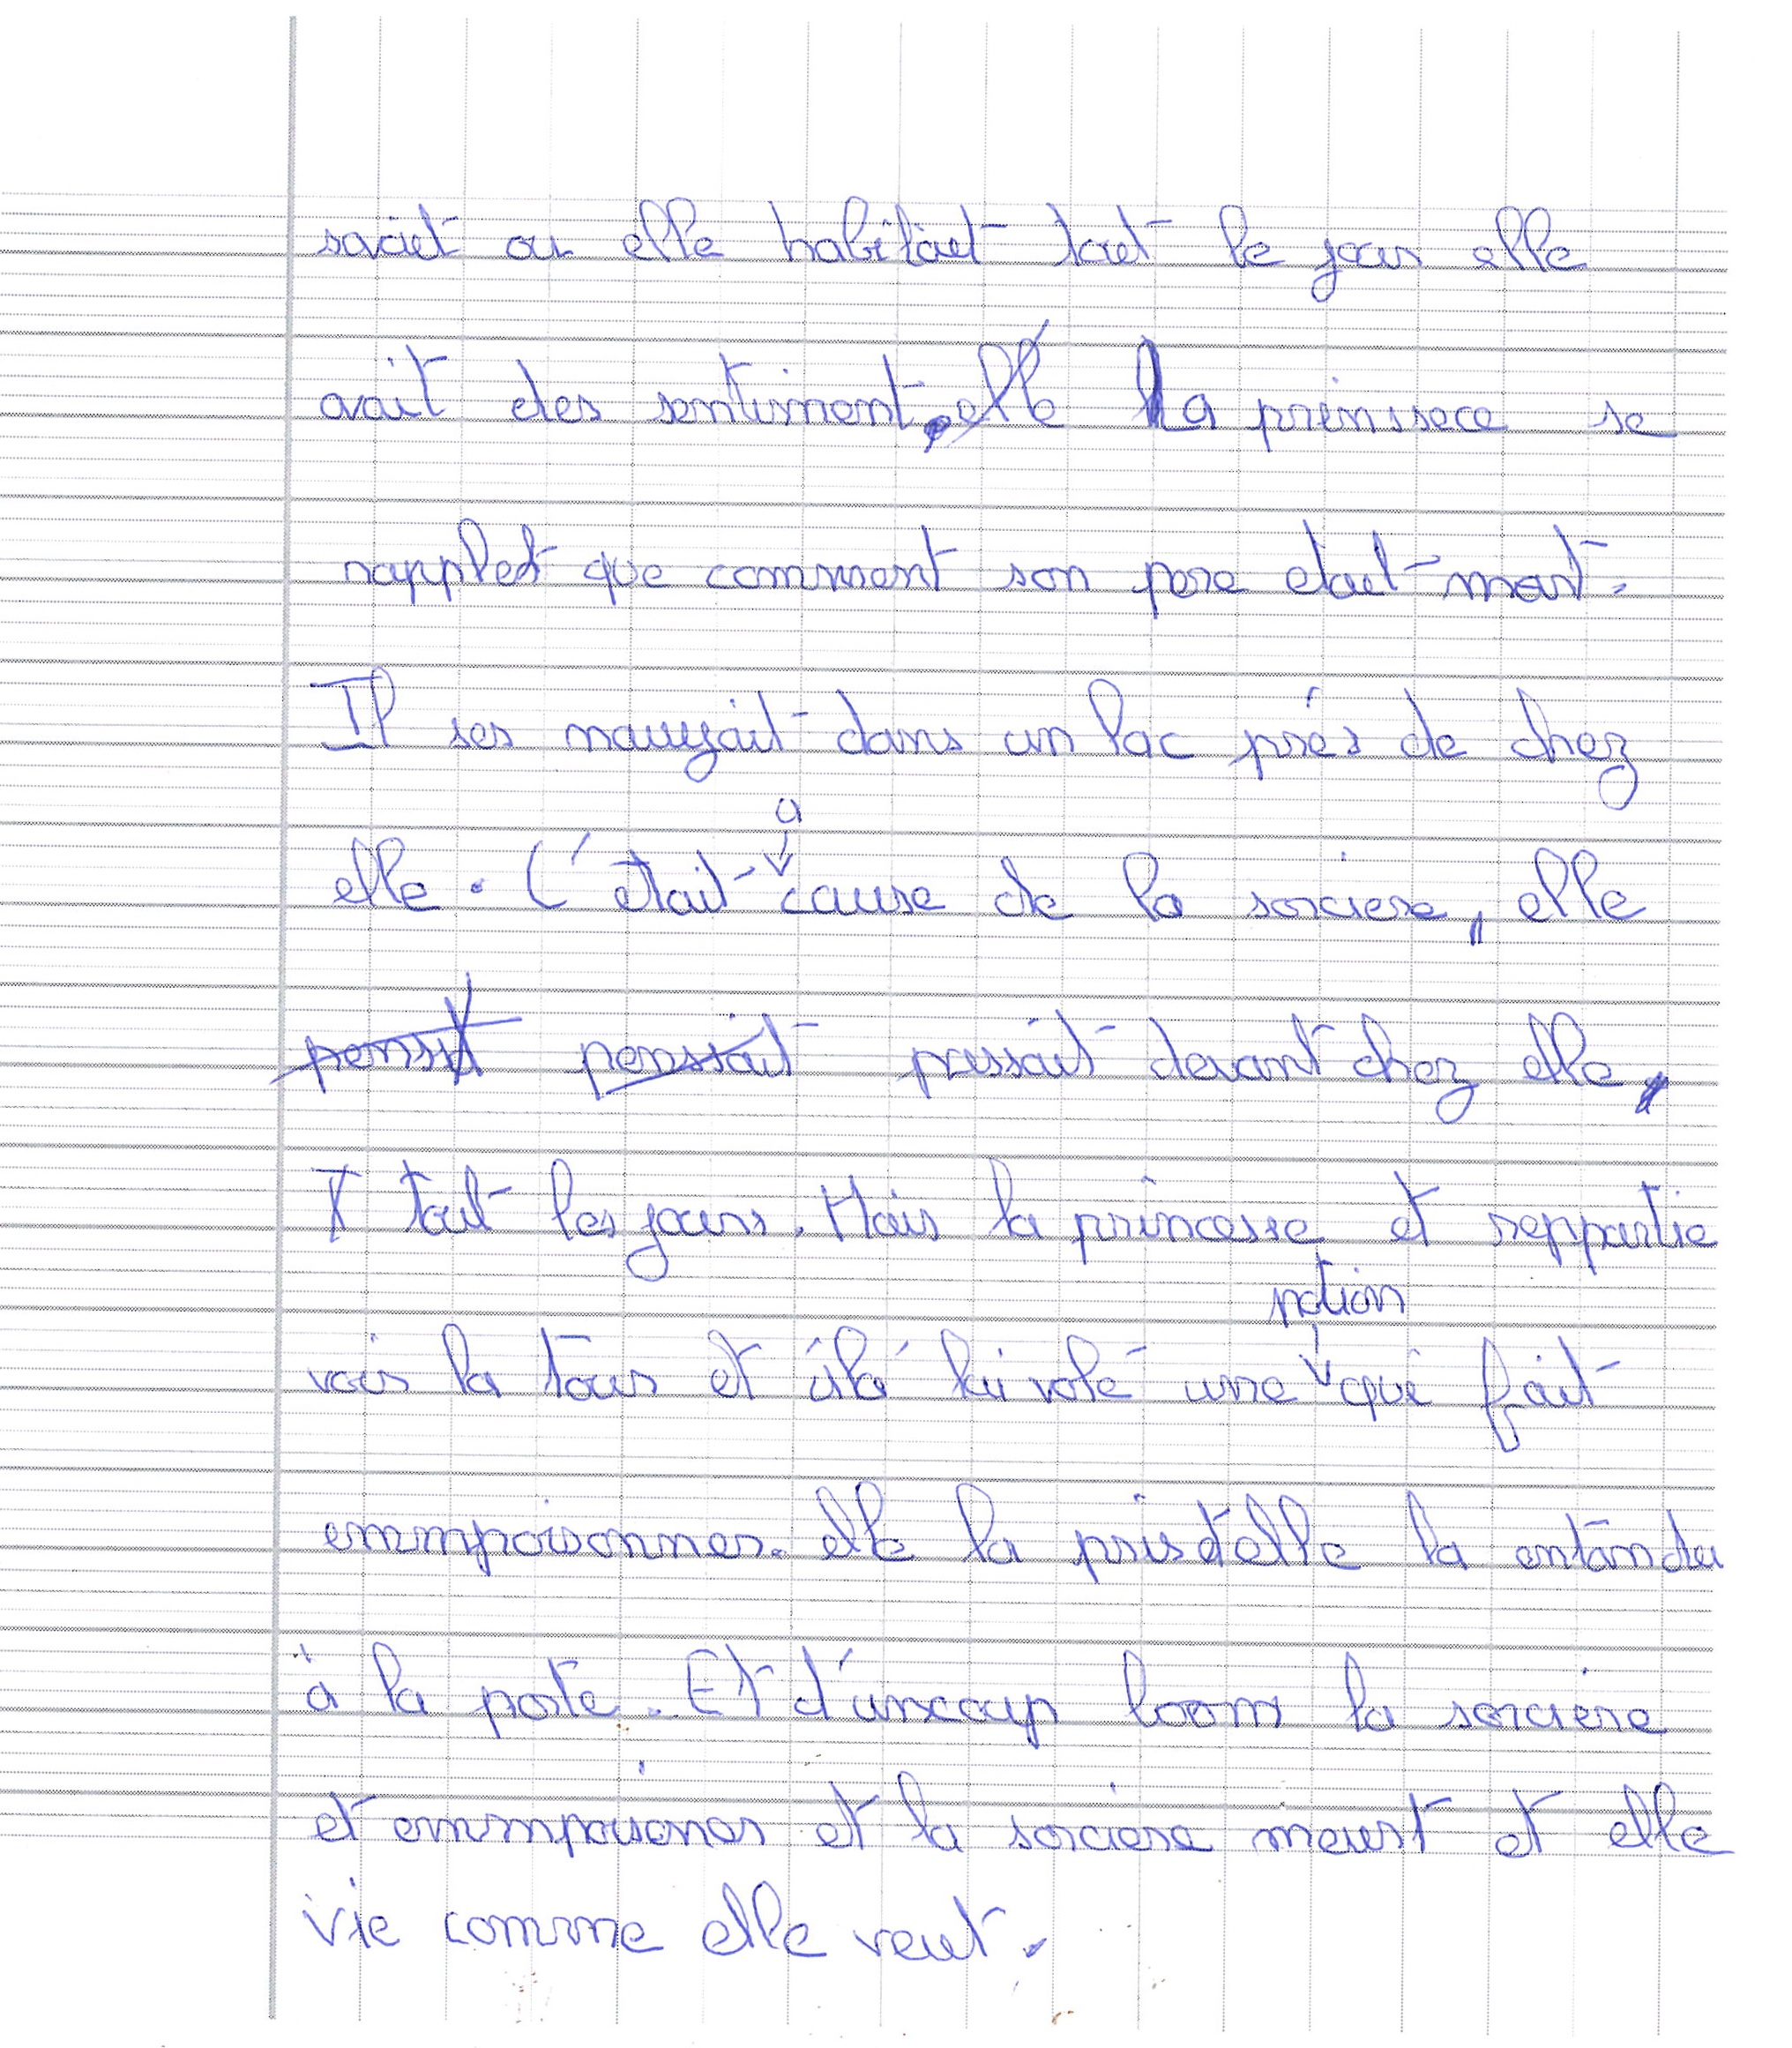 saviet ou elle habitait tout le jour elle
avait des sentiment. elle la prinssece se
rapplet que comment son pere etait mort.
Il ses nauyait dans un lac près de chez
elle. C'était a cause de la sorciere, elle
penst penssait passait devant chez elle,
tout les jours. Mais la princesse et reppartie
voir la tour et élà lui volé une potion qui fait
emmpoisonner. elle la pris d'elle la entandu
à la porte. Et d'uncoup boom la sorcière
et emmpoisoner et la sorciere meurt et elle
vie comme elle veut.